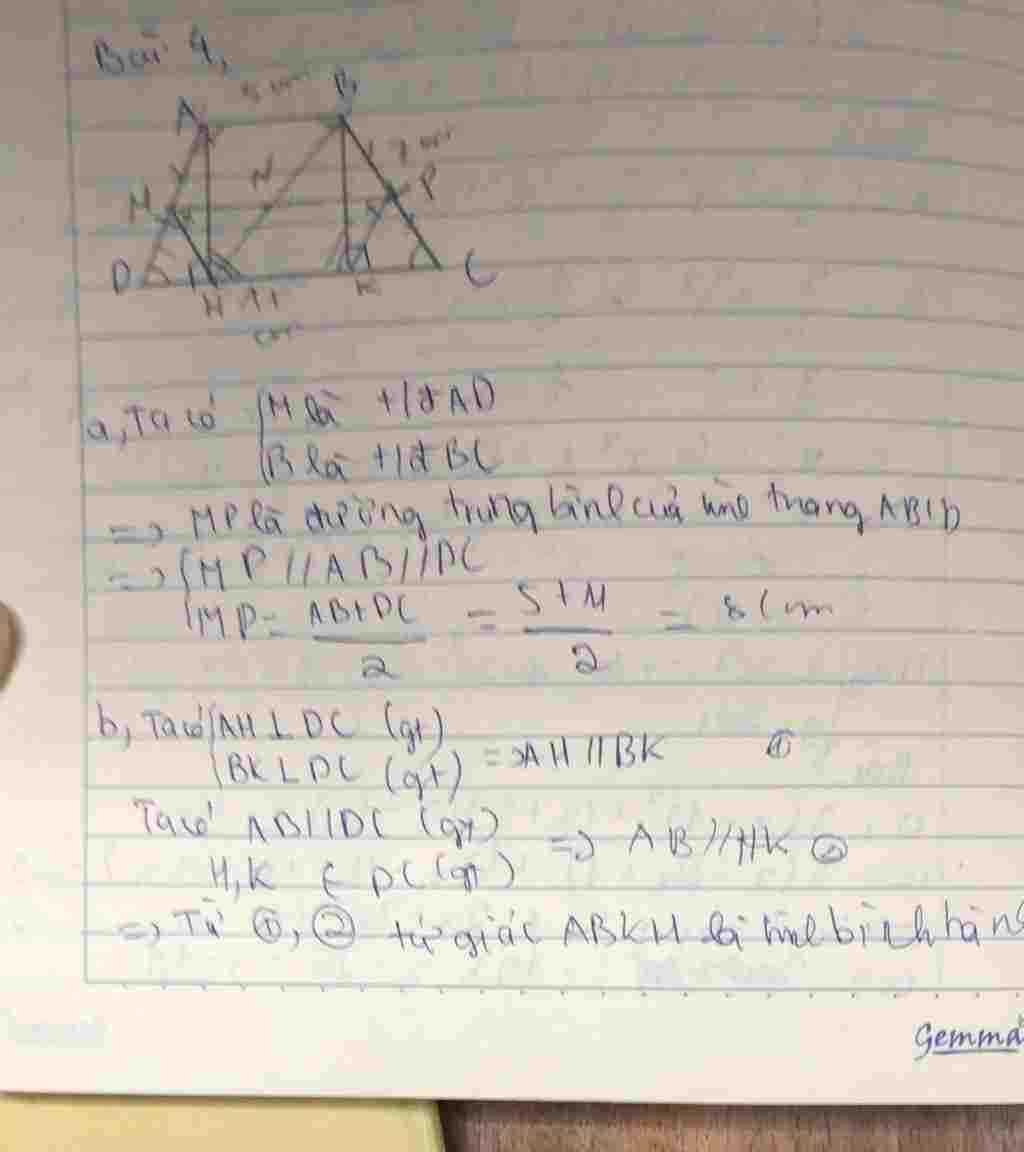 Bài 4,
5 cm
A B
7 cm
N
M P
D C
H K
11
cm
a, Ta có { M là t/đ AD
B là t/đ BC
=> MP là đường trung bình của hình thang ABCD
=> { MP // AB // DC
MP = AB+DC / 2 = 5+11 / 2 = 8 cm
b, Ta có { AH ⊥ DC (gt)
BK ⊥ DC (gt) => AH // BK ①
Ta có AB // DC (gt)
H, K ∈ DC (gt) => AB // HK ②
=> Từ ①, ② tứ giác ABKH là hình bình hàn
Gemma